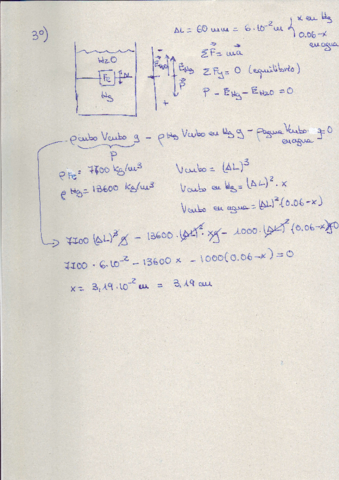 3º)
ΔL = 60 mm = 6·10⁻² m { x en Hg
0.06-x en agua
H2O
Fe
ΔL
Hg
E H2O
E Hg
P
ΣF = ma
ΣFy = 0 (equilibrio)
P - E Hg - E H2O = 0
ρcubo Vcubo g - ρHg Vcubo en Hg g - ρagua Vcubo en agua g = 0
P
ρFe = 7700 kg/m³
Vcubo = (ΔL)³
ρHg = 13600 kg/m³
Vcubo en Hg = (ΔL)² · x
Vcubo en agua = (ΔL)² (0.06-x)
7700 (ΔL)³ g - 13600 · (ΔL)² · x g - 1000 · (ΔL)² (0.06-x) g = 0
7700 · 6·10⁻² - 13600 x - 1000 (0.06-x) = 0
x = 3,19·10⁻² m = 3,19 cm